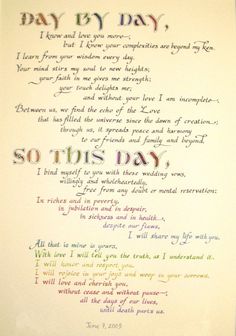 DAY BY DAY,
I know and love you more—
but I know your complexities are beyond my ken.
I learn from your wisdom every day.
Your mind stirs my soul to new heights;
your faith in me gives me strength;
your touch delights me;
and without your love I am incomplete.
Between us, we find the echo of the Love
that has filled the universe since the dawn of creation;
through us, it spreads peace and harmony
to our friends and family and beyond.
SO THIS DAY,
I bind myself to you with these wedding vows,
willingly and wholeheartedly,
free from any doubt or mental reservation:
In riches and in poverty,
in jubilation and in despair,
in sickness and in health,
despite our flaws,
I will share my life with you.
All that is mine is yours.
With love I will tell you the truth, as I understand it.
I will honor and respect you,
I will rejoice in your joys and weep in your sorrows.
I will love and cherish you,
without cease and without pause—
all the days of our lives,
until death parts us.
June 7, 2003